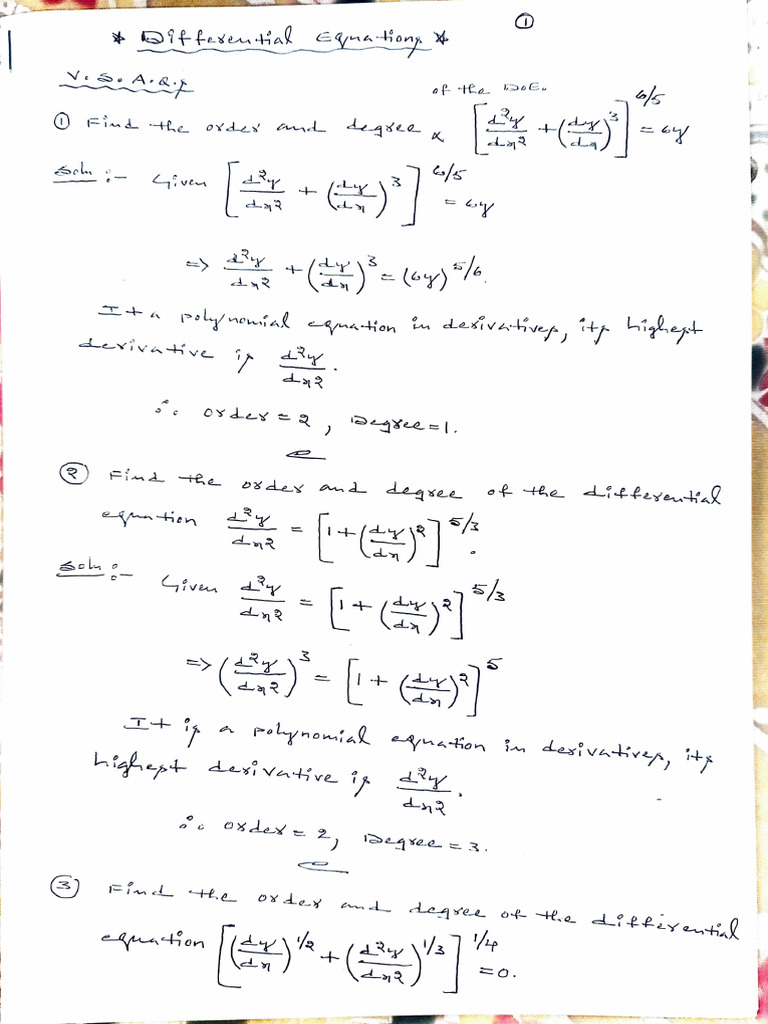 ①
* Differential Equations *
V.S.A.Qs
① Find the order and degree of the D.E. [d²y/dx² + (dy/dx)³]^6/5 = 6y
Soln :- Given [d²y/dx² + (dy/dx)³]^6/5 = 6y
=> d²y/dx² + (dy/dx)³ = (6y)^5/6.
It a polynomial equation in derivatives, its highest
derivative is d²y/dx².
∴ order = 2, Degree = 1.
② Find the order and degree of the differential
equation d²y/dx² = [1 + (dy/dx)²]^5/3.
Soln :- Given d²y/dx² = [1 + (dy/dx)²]^5/3
=> (d²y/dx²)³ = [1 + (dy/dx)²]^5
It is a polynomial equation in derivatives, its
highest derivative is d²y/dx².
∴ order = 2, Degree = 3.
③ Find the order and degree of the differential
equation [(dy/dx)^1/2 + (d²y/dx²)^1/3]^1/4 = 0.